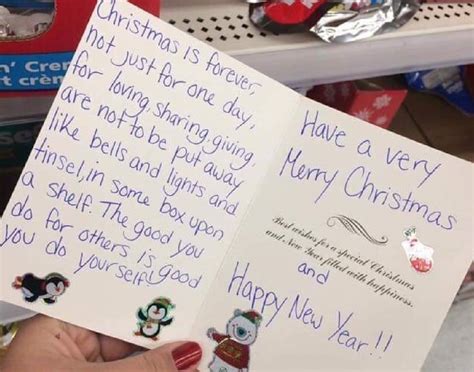 Christmas is forever,
not just for one day,
for loving, sharing, giving,
are not to be put away
like bells and lights and
tinsel, in some box upon
a shelf. The good you
do for others is good
you do yourself!
Have a very
Merry Christmas
Best wishes for a special Christmas
and New Year filled with happiness.
and
Happy New Year!!
n' Cre
t crèm